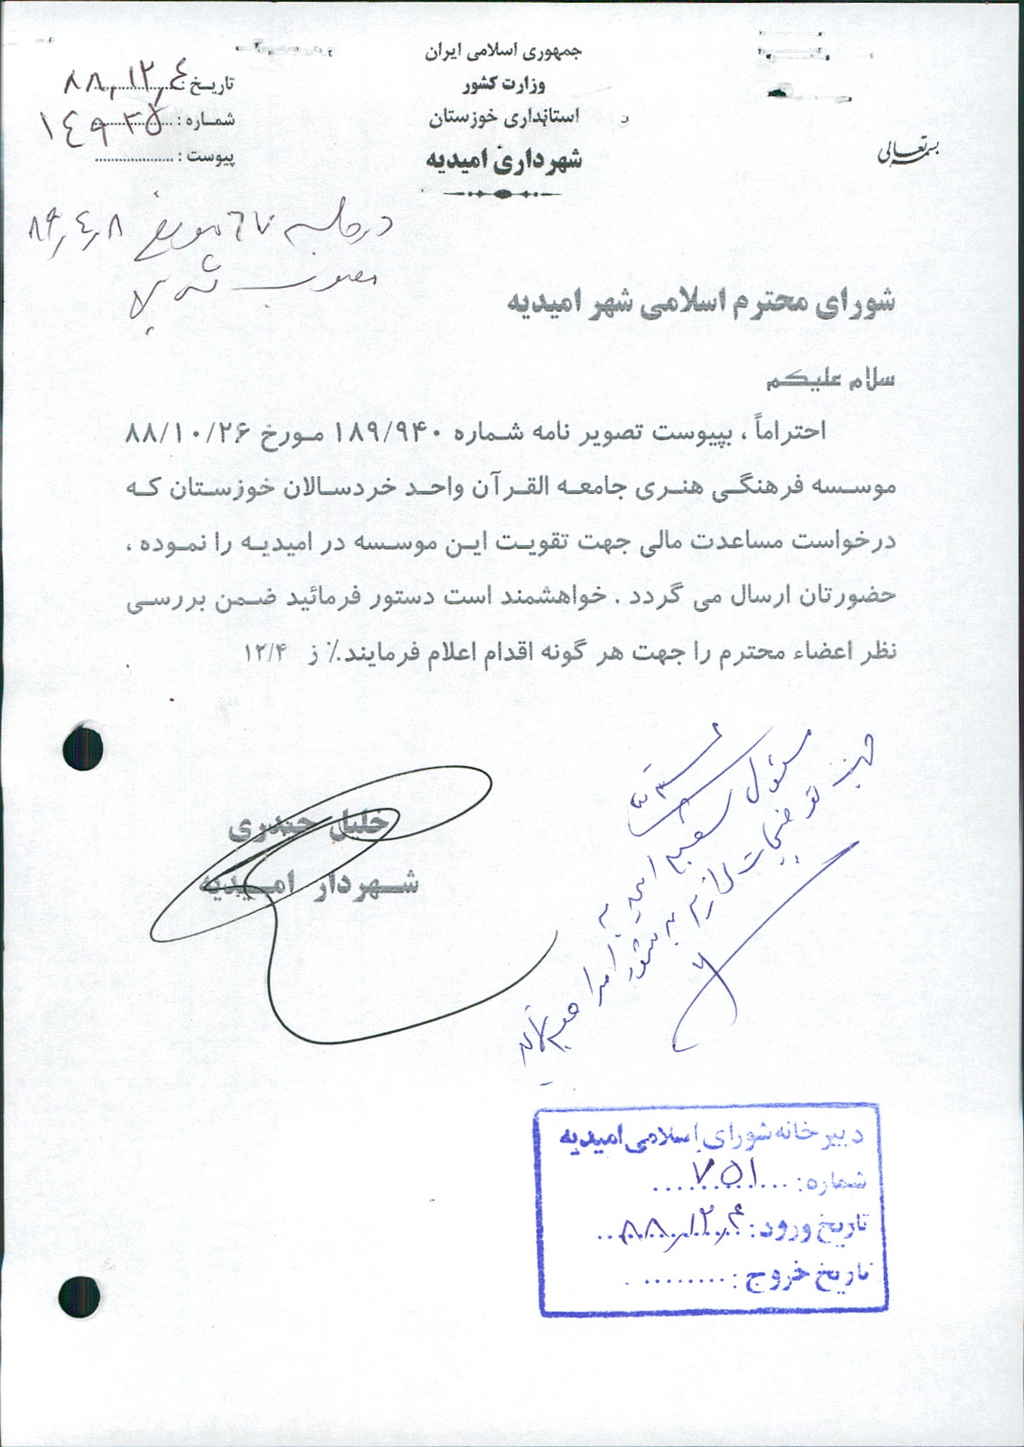 بسمه تعالی
جمهوری اسلامی ایران
وزارت کشور
استانداری خوزستان
شهرداری امیدیه
تاریخ : ۸۸,۱۲,٤
شماره :
پیوست : ....................
در جلسه ٦۷ مورخ ۸۹,٤,۸
مصوب شد
شورای محترم اسلامی شهر امیدیه
سلام علیکم
احتراماً ، بپیوست تصویر نامه شماره ۱۸۹/۹۴۰ مورخ ۸۸/۱۰/۲۶
موسسه فرهنگی هنری جامعه القرآن واحد خردسالان خوزستان که
درخواست مساعدت مالی جهت تقویت این موسسه در امیدیه را نموده ،
حضورتان ارسال می گردد . خواهشمند است دستور فرمائید ضمن بررسی
نظر اعضاء محترم را جهت هر گونه اقدام اعلام فرمایند٪ ز ۱۲/۴
خلیل حیدری
شهردار امیدیه
جهت توضیحات لازم به شورا
دبیرخانه شورای اسلامی امیدیه
شماره: ۷۵۱
تاریخ ورود: ۸۸,۱۲,۴
تاریخ خروج : .........